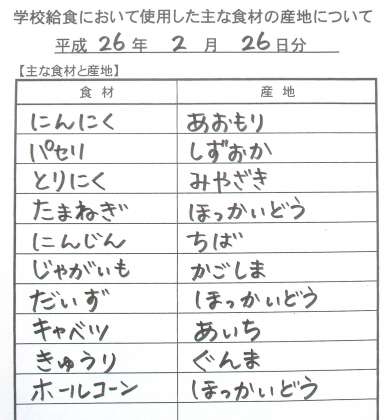 学校給食において使用した主な食材の産地について
平成 26 年 2 月 26 日分
【主な食材と産地】
食材 産地
にんにく あおもり
パセリ しずおか
とりにく みやざき
たまねぎ ほっかいどう
にんじん ちば
じゃがいも かごしま
だいず ほっかいどう
キャベツ あいち
きゅうり ぐんま
ホールコーン ほっかいどう